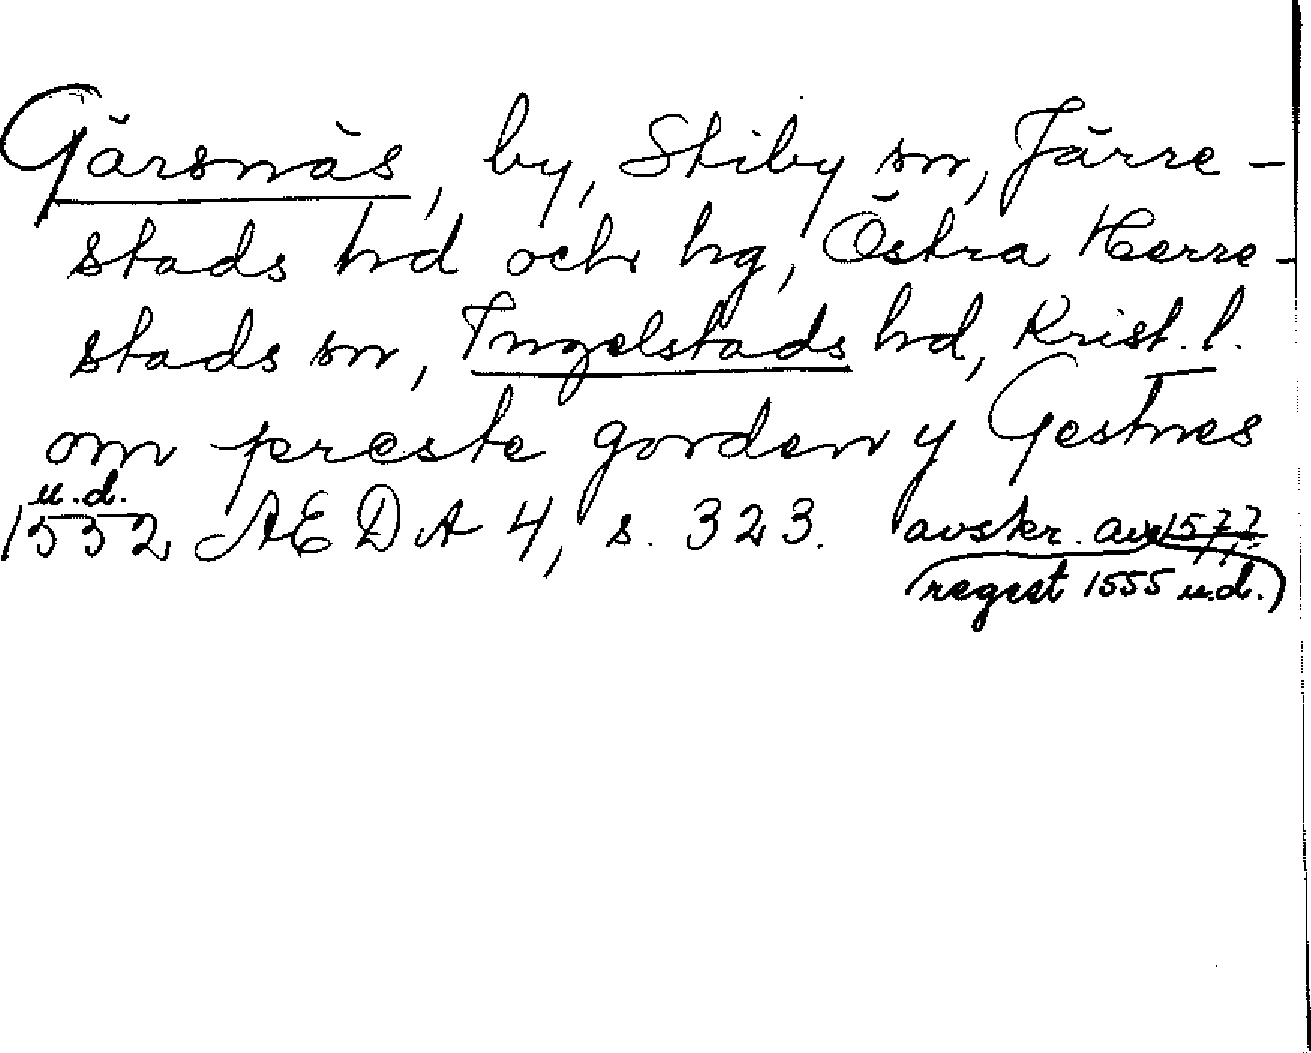 Gärsnäs, by, Stiby sn, Järre-
stads hd och hg, Östra Herre-
stads sn, Ingelstads hd, Krist. l.
om preste gorden y Gestnes
u.d.
1552 AEDA 4, s. 323. avskr. av 1577
(regest 1555 u.d.)